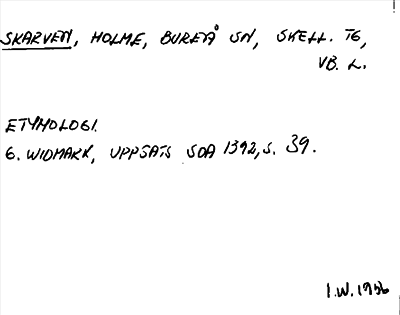 SKARVEN, HOLME, BUREÅ SN, SKELL. TG,
VB. L.
ETYMOLOGI.
G. WIDMARK, UPPSATS SOA 1392, S. 39.
I.W. 1956